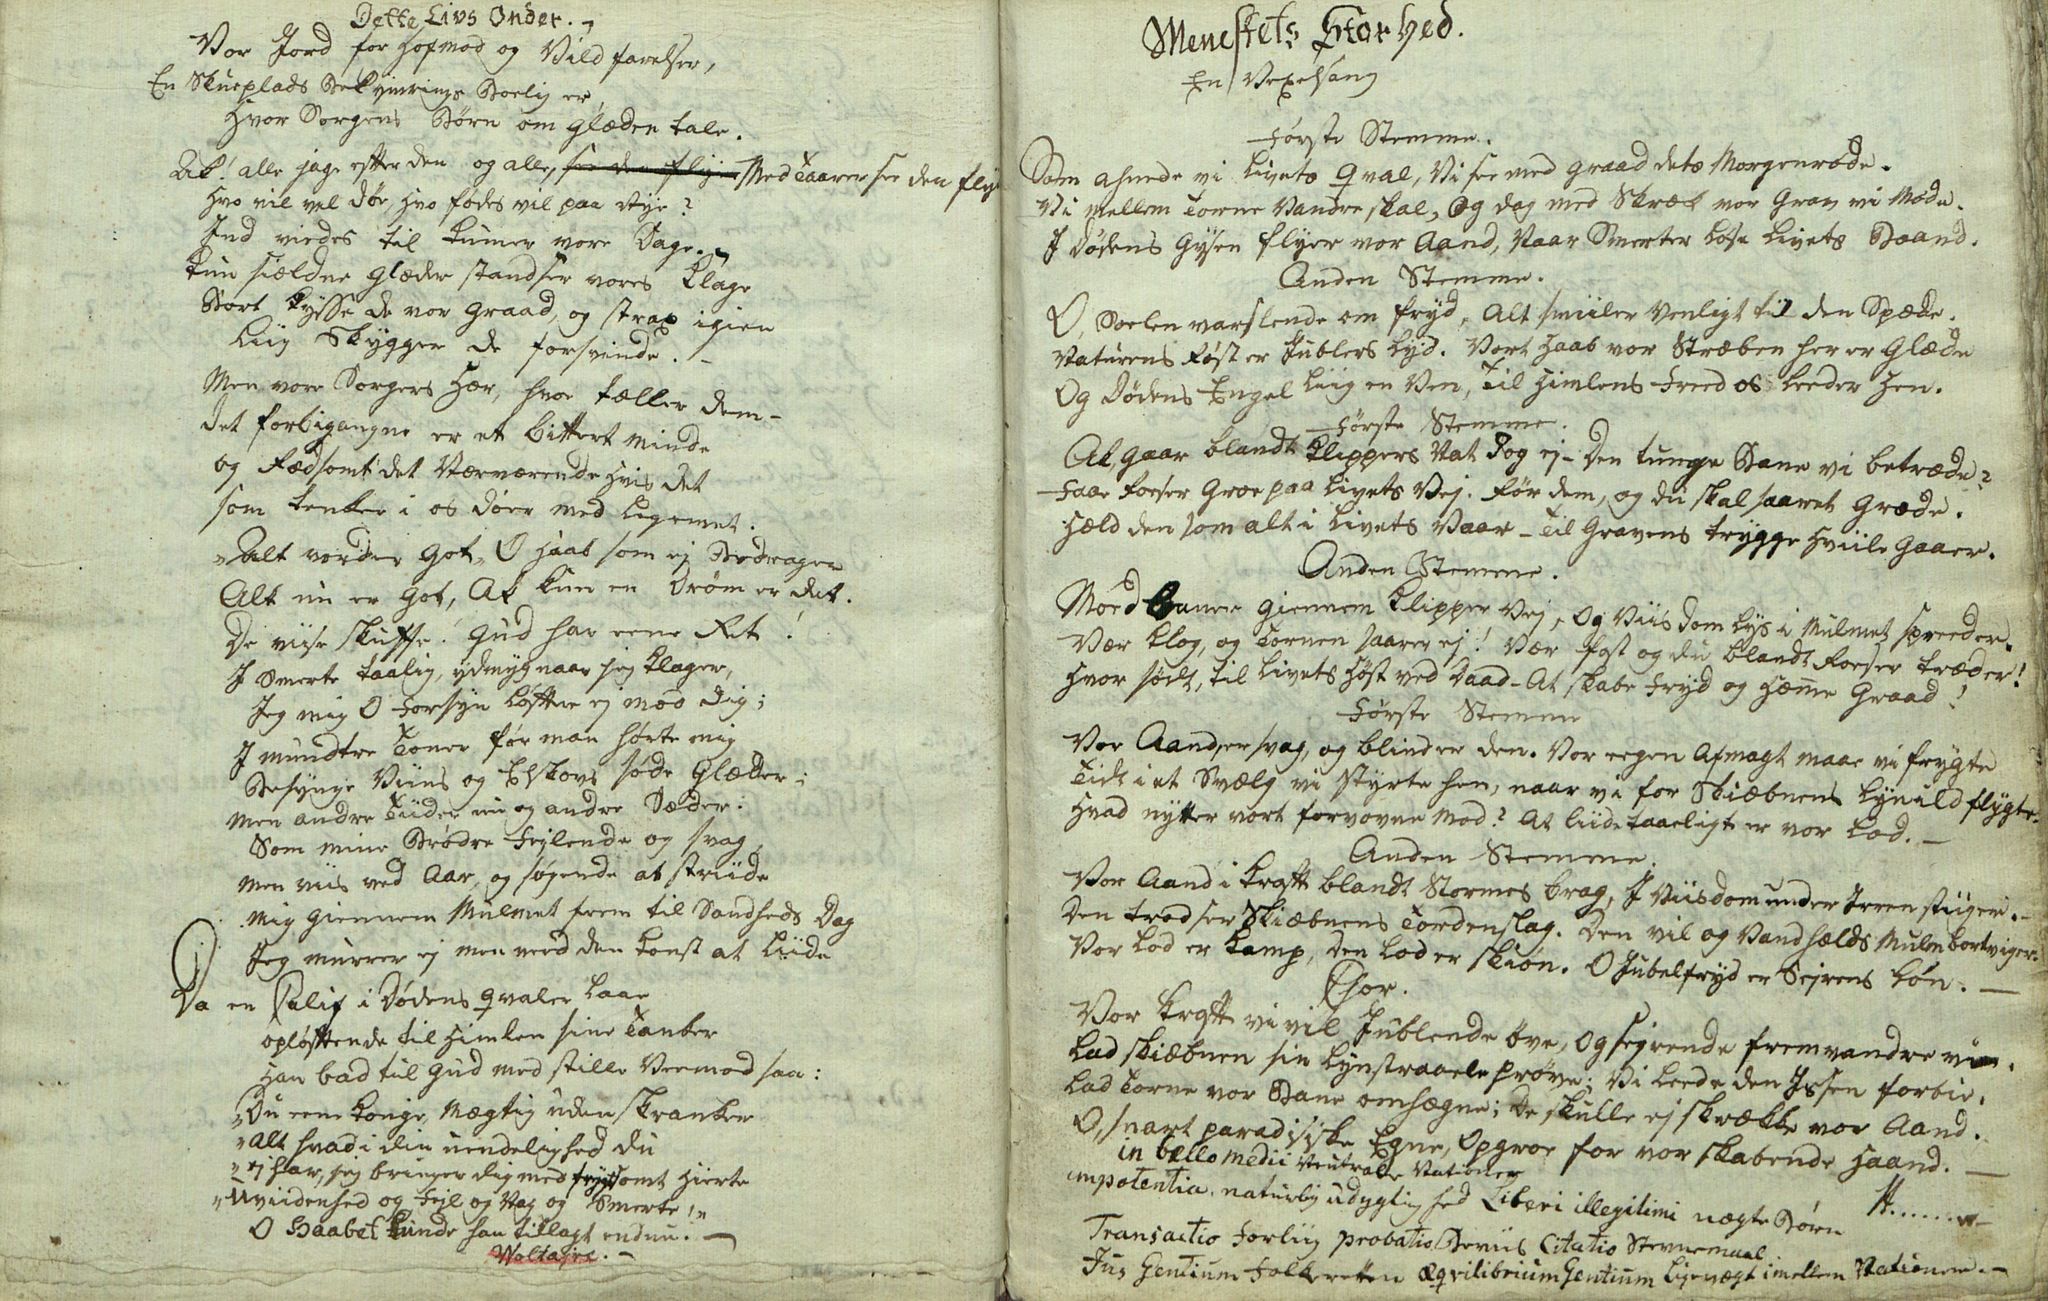 Dette Livs Onder. -
Vor Jord for Hofmod og Vildfarelser,
En Skueplads Bekymrings Boelig er
Hvor Sorgens Børn om Glæden tale.
Ak! alle jage efter den og alle, see den flye Med Taarer see den flye
Hvo vil vel døe, hvo fødes vil paa Nye?
Ind viedes til Kumer vore Dage. -
Kun sieldne Glæder standser vores Klage
Bort kysse de vor Graad, og strax igien
Liig Skygger de forsvinde. -
Men vore Sorgers Hær, hvor tæller dem -
Det forbigangne er et bittert minde
og Rædsomt det Nærværende hvis det
som tenker i os døer med Legemet.
"Alt vorder Got" O Haab som ej Bedrager
Alt nu er Got, Ak kun en Drøm er det.
De viise skuffe! Gud har eene Ret!
I Smerte taalig, ydmyg naar jeg klager,
Jeg mig O Forsyn løfter ej mod dig;
I mundtre Toner før man hørte mig
Besynge Viins og Elskovs søde Glæder;
Men andre Tiider nu og andre Sæder:
Som mine Brødre Fejlende og svag,
Men viis ved Aar, og søgende at striide
Mig giennem Mulmet frem til Sandheds Dag
Jeg murrer ej men veed den Konst at Liide
Da en Calif i Dødens Qvaler laae
opløftende til Himlen sine Tanker
Han bad til Gud med stille Veemod saa:
"Du eene Konge, Mægtig uden skranker
"Alt hvad i din uendelighed du
"ej har, jeg bringer dig med frygtsomt Hierte
"Uviidenhed og Fejl og Nag og Smerte!"
O Haabet kunde han tillagt endnu. -
Woltaire. -
Meneskets Storhed.
En Vexelsang
Første Stemme.
Som ahnede vi Livets Qval, Vi see med Graad dets Morgenrøde.
Vi mellem Torne Vandre skal, Og dag med Skræk vor Grav vi Møde.
I Dødens Gysen flyer vor Aand, Naar Smerter løse Livets Baand.
Anden Stemme.
O, Soelen varslende om fryd, Alt smiiler Venligt til den Spæde.
Naturens Røst er Jublers Lyd. Vort Haab vor Stræben her er Glæde
Og Dødens Engel Liig en Ven, Til Himlens Freed os Leeder Hen.
Første Stemme.
Ak, gaar blandt Klippers Nat dog ej - Den tunge Bane vi betræde?
Faae Roeser Groe paa Livets Vej. Rør dem, og du skal saaret Græde.
Hæld den som alt i Livets Vaar - Til Gravens trygge Hviile Gaaer.
Anden Stemme.
Moed baner giennem Klipper Vej, Og Viisdom Lys i Mulmet spreeder.
Vær klog, og Tornen saarer ej! Vær fast og du blandt Roeser træder!
Hvor sødt, til Livets Høst ved Daad - At skabe Fryd og Hæmme Graad!
Første Stemme
Vor Aand er svag, og blind er den. Vor eegen Afmagt maae vi frygte
Tidt i et Svælg vi styrte hen, naar vi for Skiæbnens Lynild flygte.
Hvad nytter vort forvovne Mod? At Liide taaeligt er vor Lod. -
Anden Stemme.
Vor Aand i kraft blandt Stormes brag, I Viisdom under Irren stiiger. -
Den trodser Skiæbnens Tordenslag. Den vil og Vandhælds Mulm bortviger.
Vor Lod er Kamp, den Lod er skiøn. O Jubelfryd er Sejrens Løn. -
Chor.
Vor kraft vi vil Jublende øve, Og sejrende fremvandre vi.
Lad skiæbnen sin Lynstraaele prøve; Vi Leede den Issen forbie.
Lad Torne vor Bane omhægne; De skulle ej skrække vor Aand.
O, snart paradisiske Egne, Opgroe for vor skabende Haand. -
in bello medii Neutrale Nationer
impotentia. naturlig udygtighed Liberi illegitimi uægte Børn
Transactio Forliig probatio Beviis Citatio Stevnemaal
Jus Gentium Folkeretten Æqvilibrium Gentium Ligevægt imellem Nationer. -